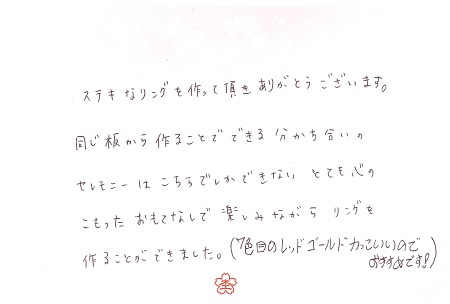 ステキなリングを作って頂きありがとうございます。
同じ板から作ることでできる分かち合いの
セレモニーはこちらでしかできない とても心の
こもったおもてなしで楽しみながらリングを
作ることができました。(7色目のレッドゴールドカッコいいので
おすすめです!)